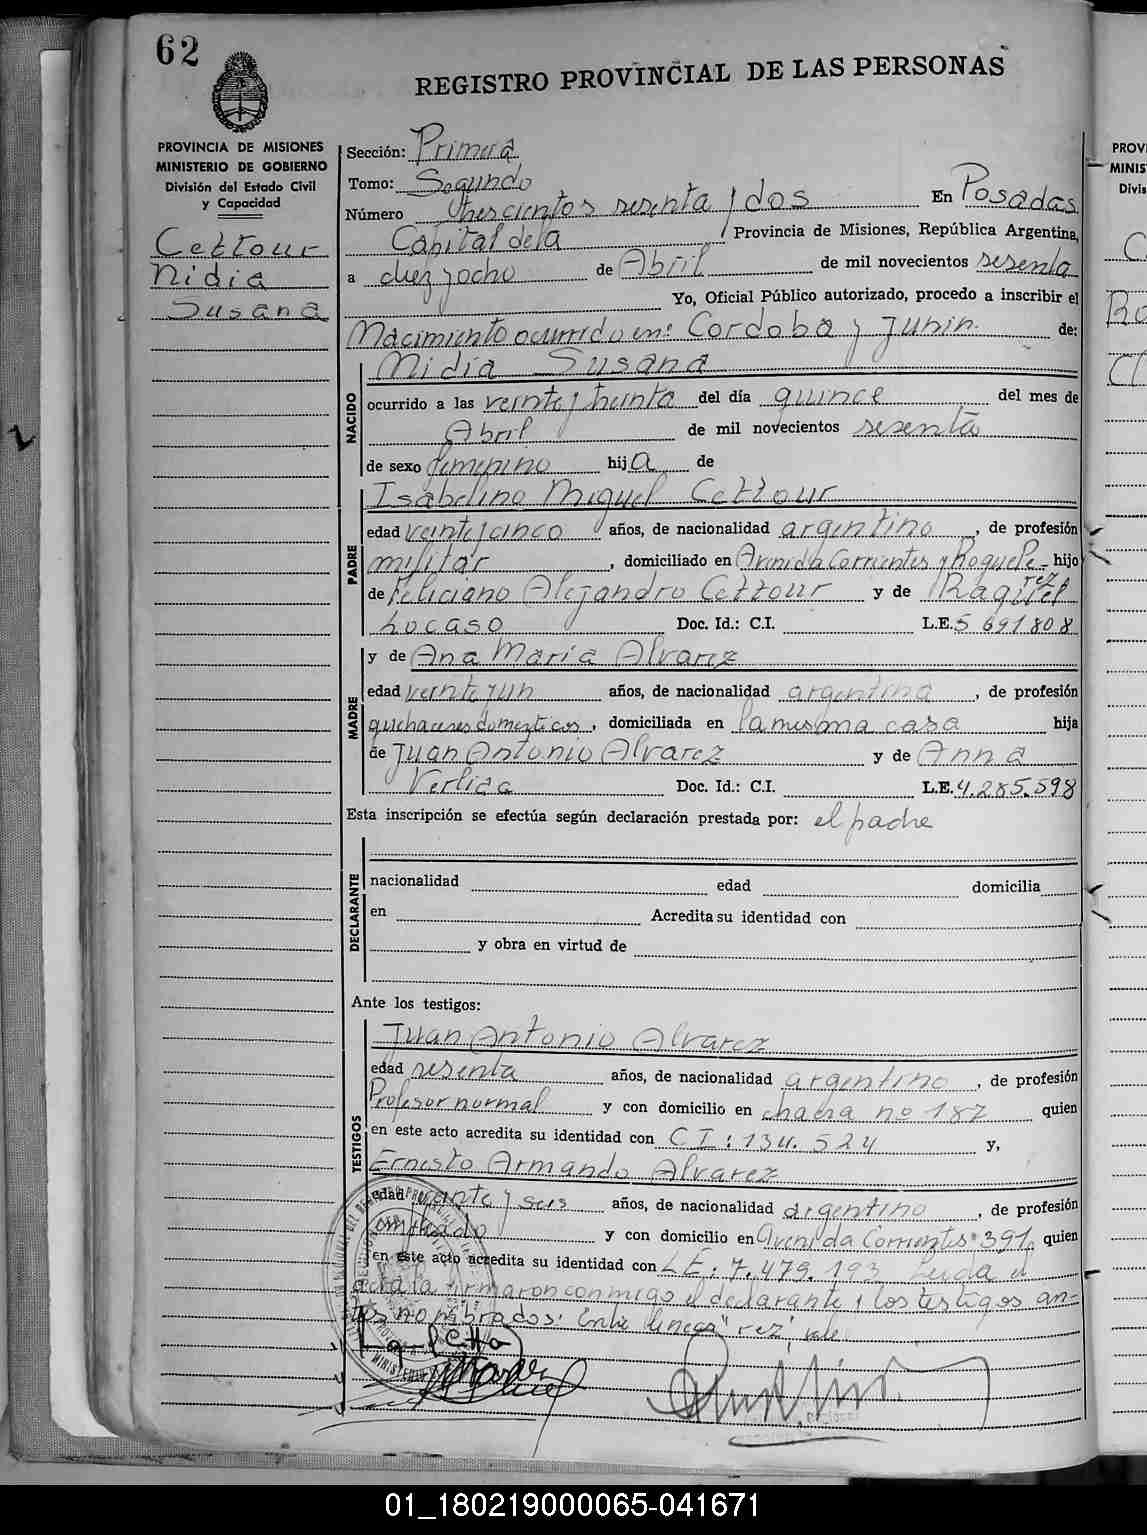 62
REGISTRO PROVINCIAL DE LAS PERSONAS
PROVINCIA DE MISIONES
MINISTERIO DE GOBIERNO
División del Estado Civil
y Capacidad
Cettour
Nidia
Susana
Sección: Primera
Tomo: Segundo
Número trescientos sesenta y dos En Posadas
Capital de la Provincia de Misiones, República Argentina,
a diez y ocho de Abril de mil novecientos sesenta
Yo, Oficial Público autorizado, procedo a inscribir el
Nacimiento ocurrido en: Cordoba y Junin de:
NACIDO
Nidia Susana
ocurrido a las veinte y treinta del día quince del mes de
Abril de mil novecientos sesenta
de sexo femenino hija de
PADRE
Isabelino Miguel Cettour
edad veinte y cinco años, de nacionalidad argentino, de profesión
militar, domiciliado en Avenida Corrientes y Roque Pe- hijo
rez
de Feliciano Alejandro Cettour y de Raquel
Locaso Doc. Id.: C.I. L.E. 5 691 808
MADRE
y de Ana Maria Alvarez
edad veinte y un años, de nacionalidad argentina, de profesión
quehaceres domesticos, domiciliada en la misma casa hija
de Juan Antonio Alvarez y de Anna
Verlida Doc. Id.: C.I. L.E. 4.285.598
Esta inscripción se efectúa según declaración prestada por: el padre
DECLARANTE
nacionalidad edad domicilia
en Acredita su identidad con
y obra en virtud de
Ante los testigos:
TESTIGOS
Juan Antonio Alvarez
edad sesenta años, de nacionalidad argentino, de profesión
Profesor normal y con domicilio en chacra no 187 quien
en este acto acredita su identidad con C I: 134. 524 y,
Ernesto Armando Alvarez
edad veinte y seis años, de nacionalidad argentino, de profesión
empleado y con domicilio en Avenida Corrientes 391 quien
en este acto acredita su identidad con L E: 7.479.193 Leida el
acta la firmaron conmigo el declarante y los testigos an-
tes nombrados: Entre lineas "rez" vale.
PROV
MINIS
Divis
01_180219000065-041671